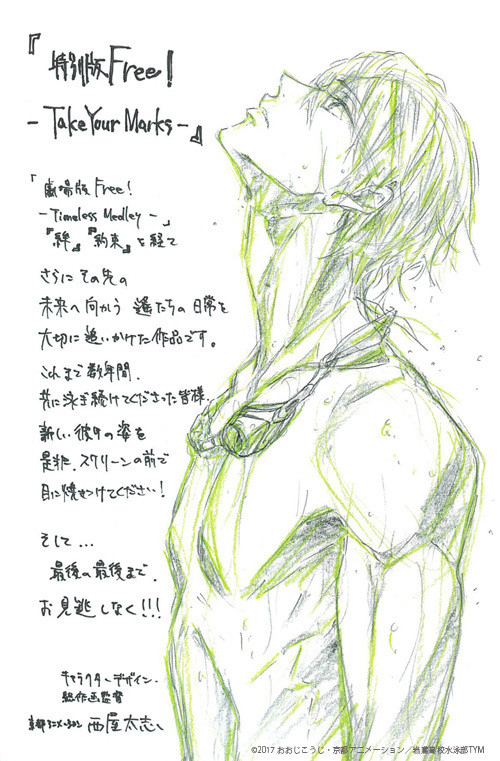 『特別版Free!
-Take Your Marks-』
「劇場版 Free!
-Timeless Medley-」
『絆』『約束』を経て
さらにその先の
未来へ向かう 遙たちの日常を
大切に追いかけた作品です。
これまで数年間、
共に泳ぎ続けてくださった皆様、
新しい彼らの姿を
是非、スクリーンの前で
目に焼きつけてください!
そして…
最後の最後まで、
お見逃しなく!!!
キャラクターデザイン・
総作画監督
京都アニメーション 西屋太志
©2017 おおじこうじ・京都アニメーション/岩鳶高校水泳部TYM